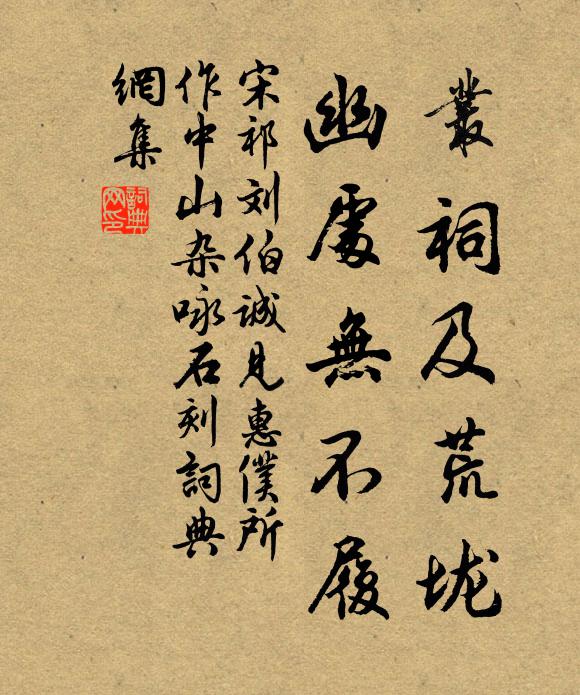 叢祠及荒垅
幽處無不履
宋祁刘伯誠見惠僕所
作中山杂咏石刻詞典
網集
詞典
网印